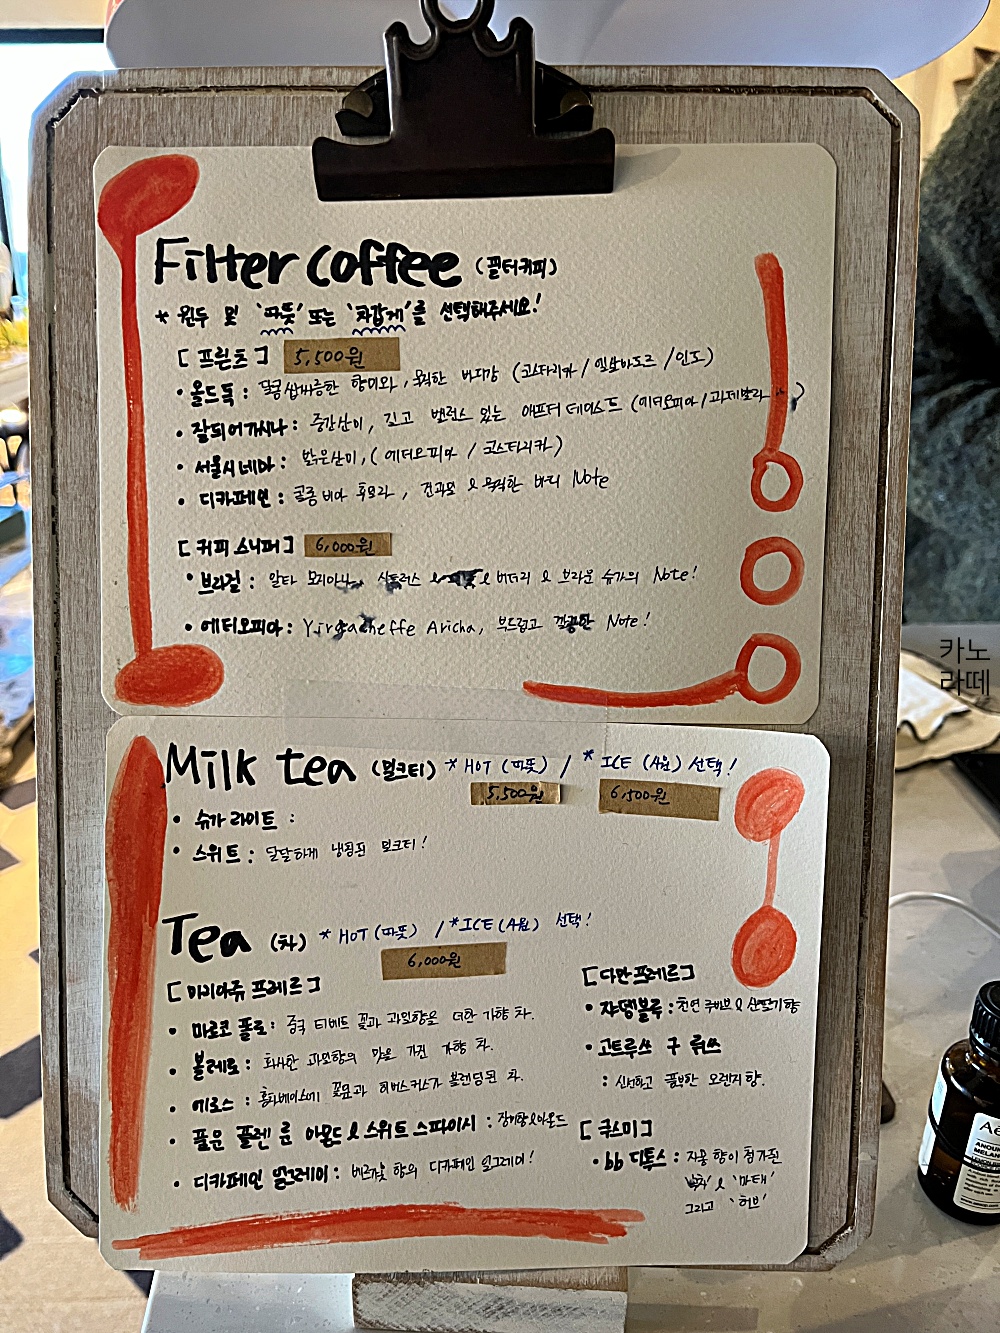 Filter coffee (필터커피)
* 원두 및 '따뜻' 또는 '차갑게'를 선택해주세요!
[프릳츠] 5,500원
• 올드독 : 달콤쌉싸름한 향미와, 묵직한 바디감 (코스타리카/엘살바도르/인도)
• 잘되어가시나 : 중간산미, 깊고 밸런스 있는 애프터 테이스트 (에티오피아/과테말라)
• 서울시네마 : 밝은산미, (에티오피아 / 코스타리카)
• 디카페인 : 콜롬비아 후일라, 견과류 & 묵직한 바디 Note
[커피 스니퍼] 6,000원
• 브라질 : 알타 모지아나, 시트러스 & 버터리 & 브라운 슈가의 Note!
• 에티오피아 : Yirgacheffe Aricha, 부드럽고 깔끔한 Note!
카노
라떼
Milk tea (밀크티) * HOT (따뜻) / * ICE (차원) 선택!
5,500원 6,500원
• 슈가 라이트 :
• 스위트 : 달달하게 냉침된 밀크티!
Tea (차) * HOT (따뜻) / * ICE (차원) 선택!
6,000원
[마리아쥬 프레르]
• 마르코 폴로 : 중국 티베트 꽃과 과일향을 더한 가향 차.
• 볼레로 : 화사한 과일향의 맛을 가진 가향 차.
• 에로스 : 홍차베이스에 꽃잎과 히비스커스가 블렌딩된 차.
• 폴운 플렌 륀 아몬드 & 스위트 스파이시 : 장미향&아몬드
• 디카페인 얼그레이 : 베르가못 향의 디카페인 얼그레이!
[다만프레르]
• 쟈뎅블루 : 천연 루바브 & 산딸기향
• 고트루쓰 구 뤼쓰
: 신선하고 풍부한 오렌지 향.
[쿠스미]
• bb 디톡스 : 자몽 향이 첨가된
'녹차' & '마테'
그리고 '허브'